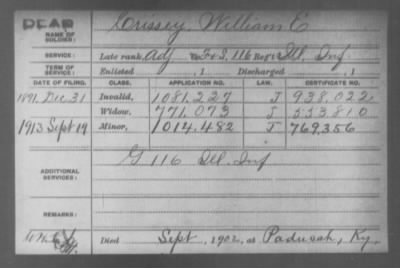 DEAD
NAME OF SOLDIER: Crissey, William E.
SERVICE: Late rank, Adj Co. F&S, 116 Reg't Ill. Inf
TERM OF SERVICE: Enlisted , 1 Discharged , 1
DATE OF FILING. CLASS. APPLICATION NO. LAW. CERTIFICATE NO.
1891 Dec. 31 Invalid, 1081.227 J 938.022
Widow, 771.073 J 533.810
1913 Sept 19 Minor, 1014.482 J 769.356
ADDITIONAL SERVICES: G 116 Ill. Inf
REMARKS:
Died Sept, 1902, at Paducah, Ky.